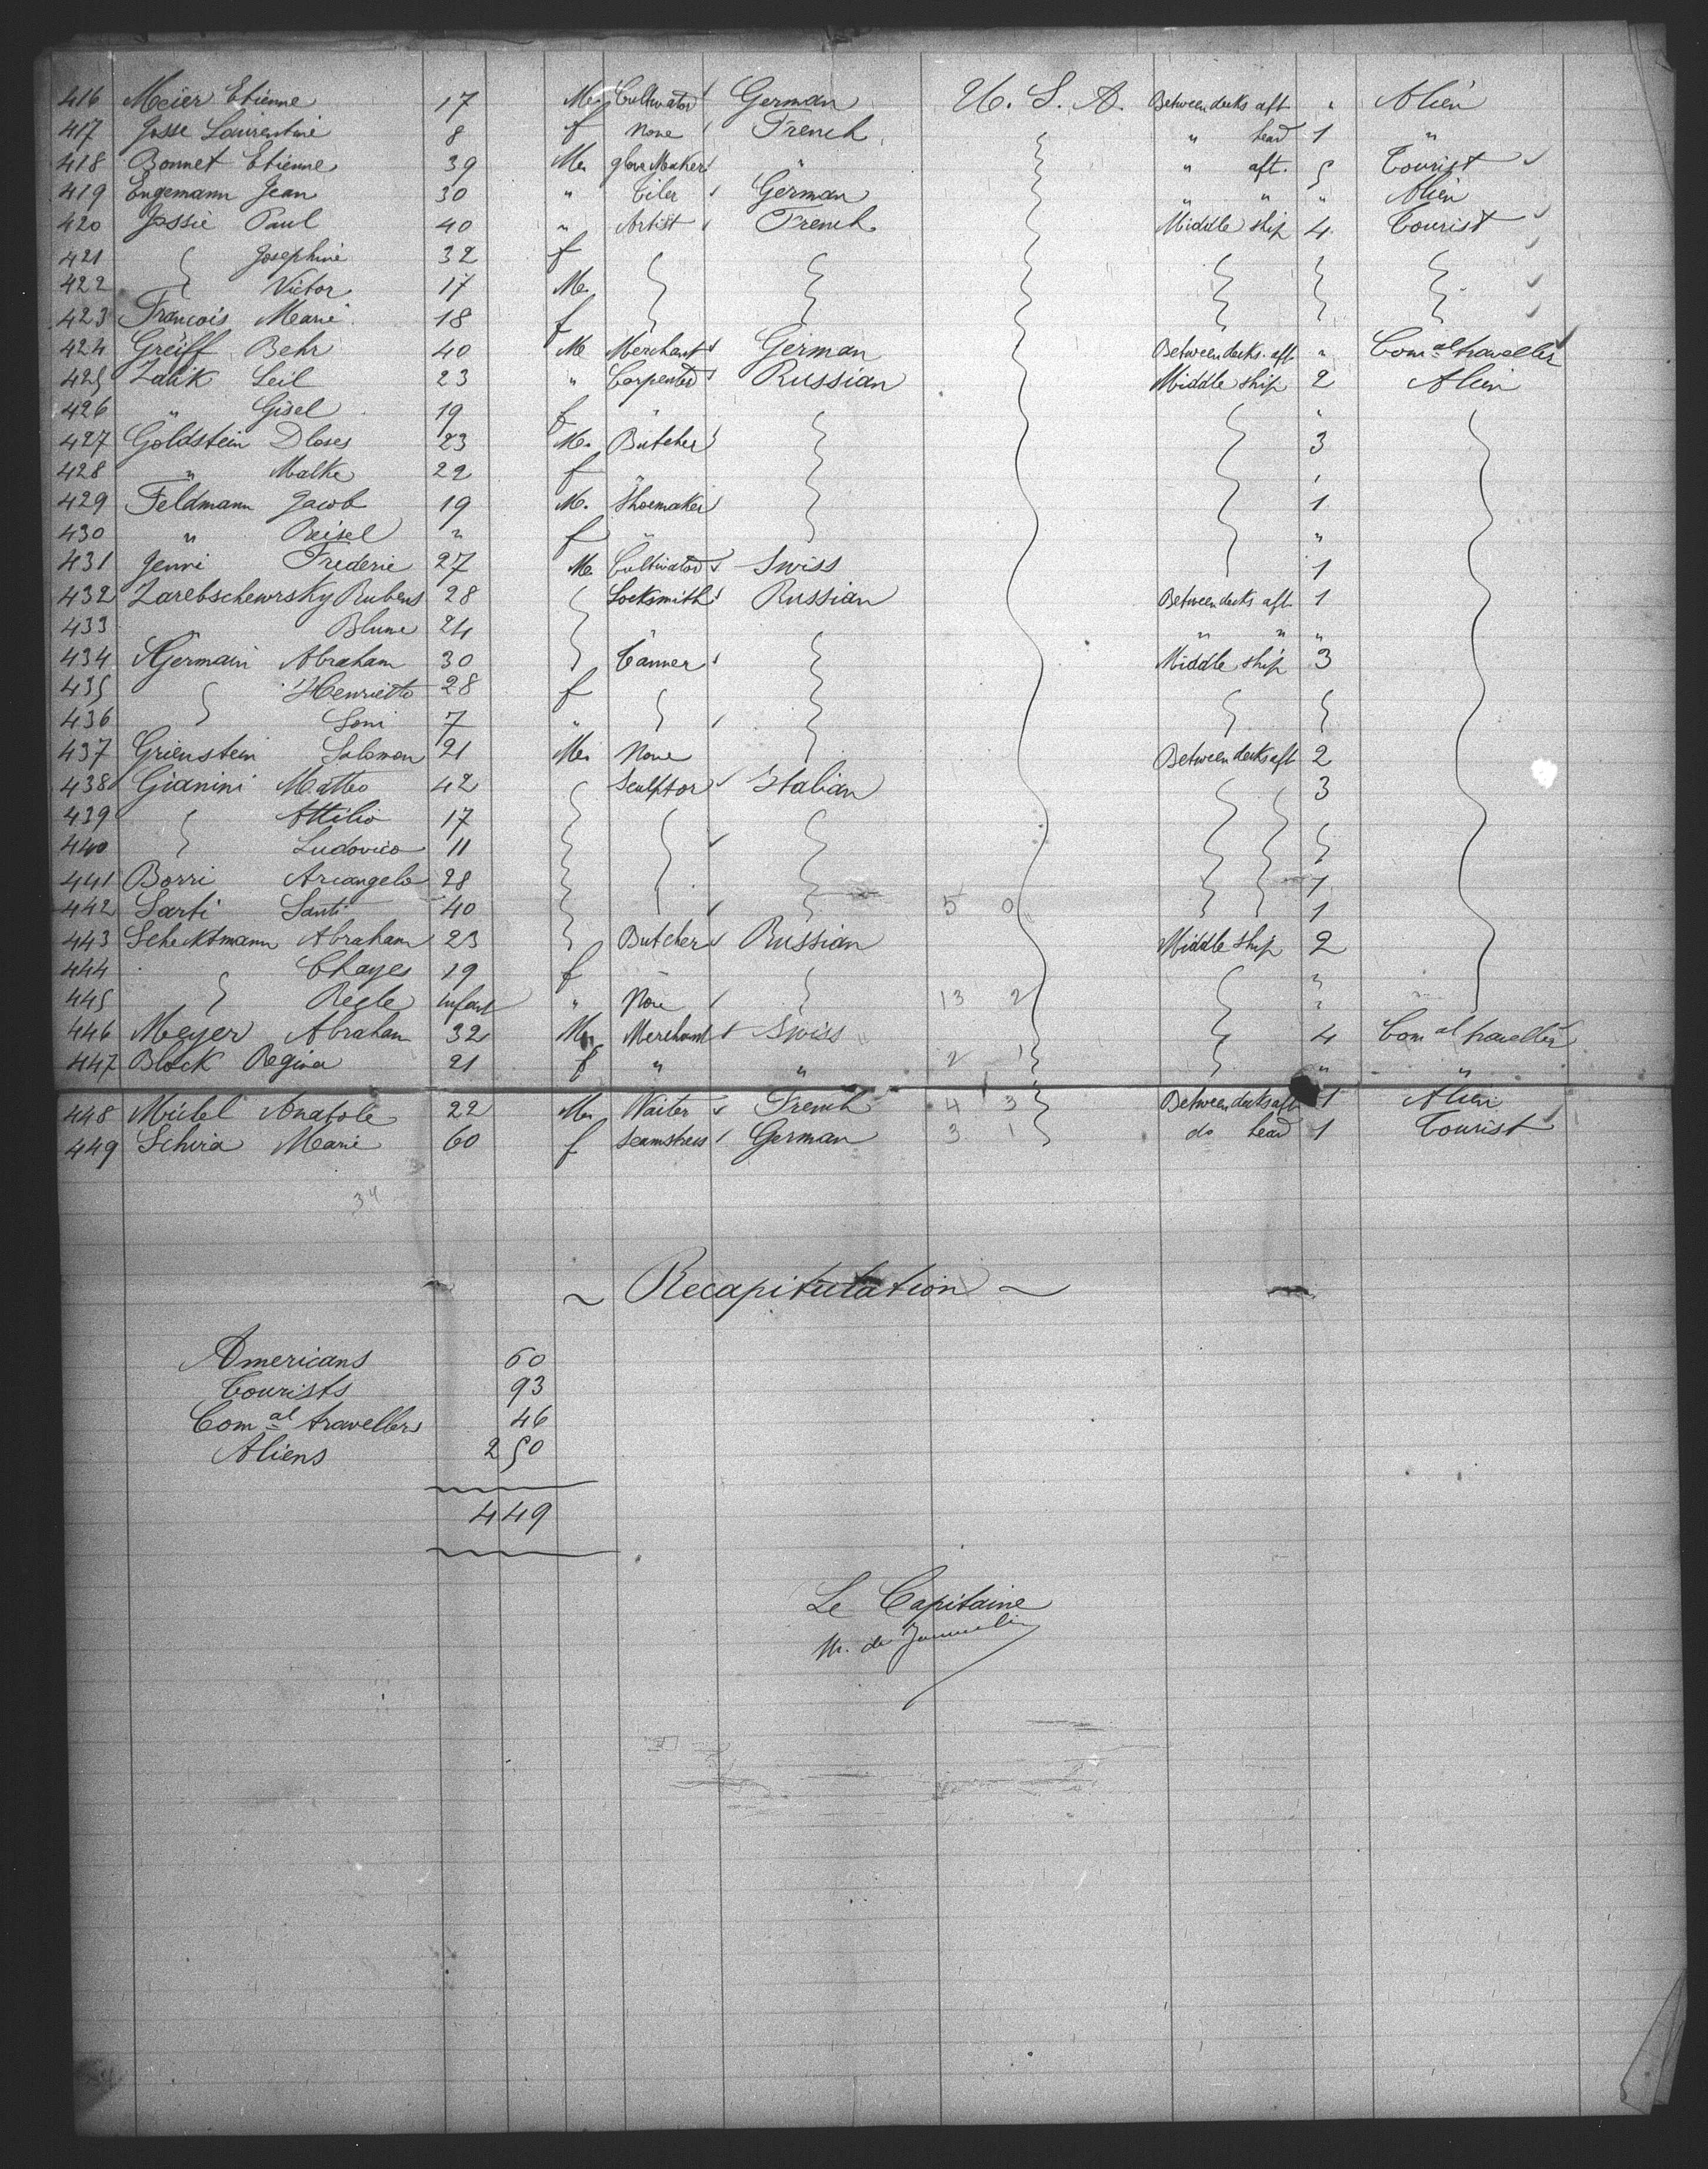 416 Meier Etienne 17 M. Cultivator German U. S. A. Between decks aft " Alien
417 Josse Laurentine 8 f None French " head 1 "
418 Bonnet Etienne 39 M. glove Maker " " aft. 5 Tourist
419 Engemann Jean 30 " Tiler German " " " Alien
420 Jossie Paul 40 " Artist French Middle ship 4 Tourist
421 Josephine 32 f
422 Victor 17 M.
423 Francois Marie 18 f
424 Greiff Behr 40 M Merchant German Between decks aft " Com al traveller
425 Zalik Leil 23 " Carpenter Russian Middle ship 2 Alien
426 " Gisel 19 f " "
427 Goldstein Dloses 23 M. Butcher 3
428 " Malke 22 f " "
429 Feldmann Jacob 19 M. Shoemaker 1
430 " Reisel " f " "
431 Jenni Frederic 27 M. Cultivator Swiss 1
432 Zarebschewrsky Rubens 28 Locksmith Russian Between decks aft 1
433 " Blume 24 " " " "
434 Germain Abraham 30 Tanner Middle ship 3
435 Henriette 28 f
436 Soni 7 "
437 Grienstein Salomon 21 M. None Between decks aft 2
438 Gianini Matteo 42 Sculptor Italian 3
439 Attilio 17
440 Ludovico 11
441 Borri Arcangelo 28 1
442 Sarti Santi 40 5 0 1
443 Schecktmann Abraham 23 Butcher Russian Middle ship 2
444 Chayes 19 f "
445 Regle infant " None 13 2 "
446 Meyer Abraham 32 M. Merchant Swiss 4 Com al traveller
447 Block Regina 21 f " " 2 1 " "
448 Michel Anatole 22 M. Waiter French 4 3 Between decks aft 1 Alien
449 Schira Marie 60 f Seamstress German 3 1 do head 1 Tourist
34
~ Recapitulation ~
Americans 60
Tourists 93
Com al travellers 46
Aliens 250
449
Le Capitaine
M. de